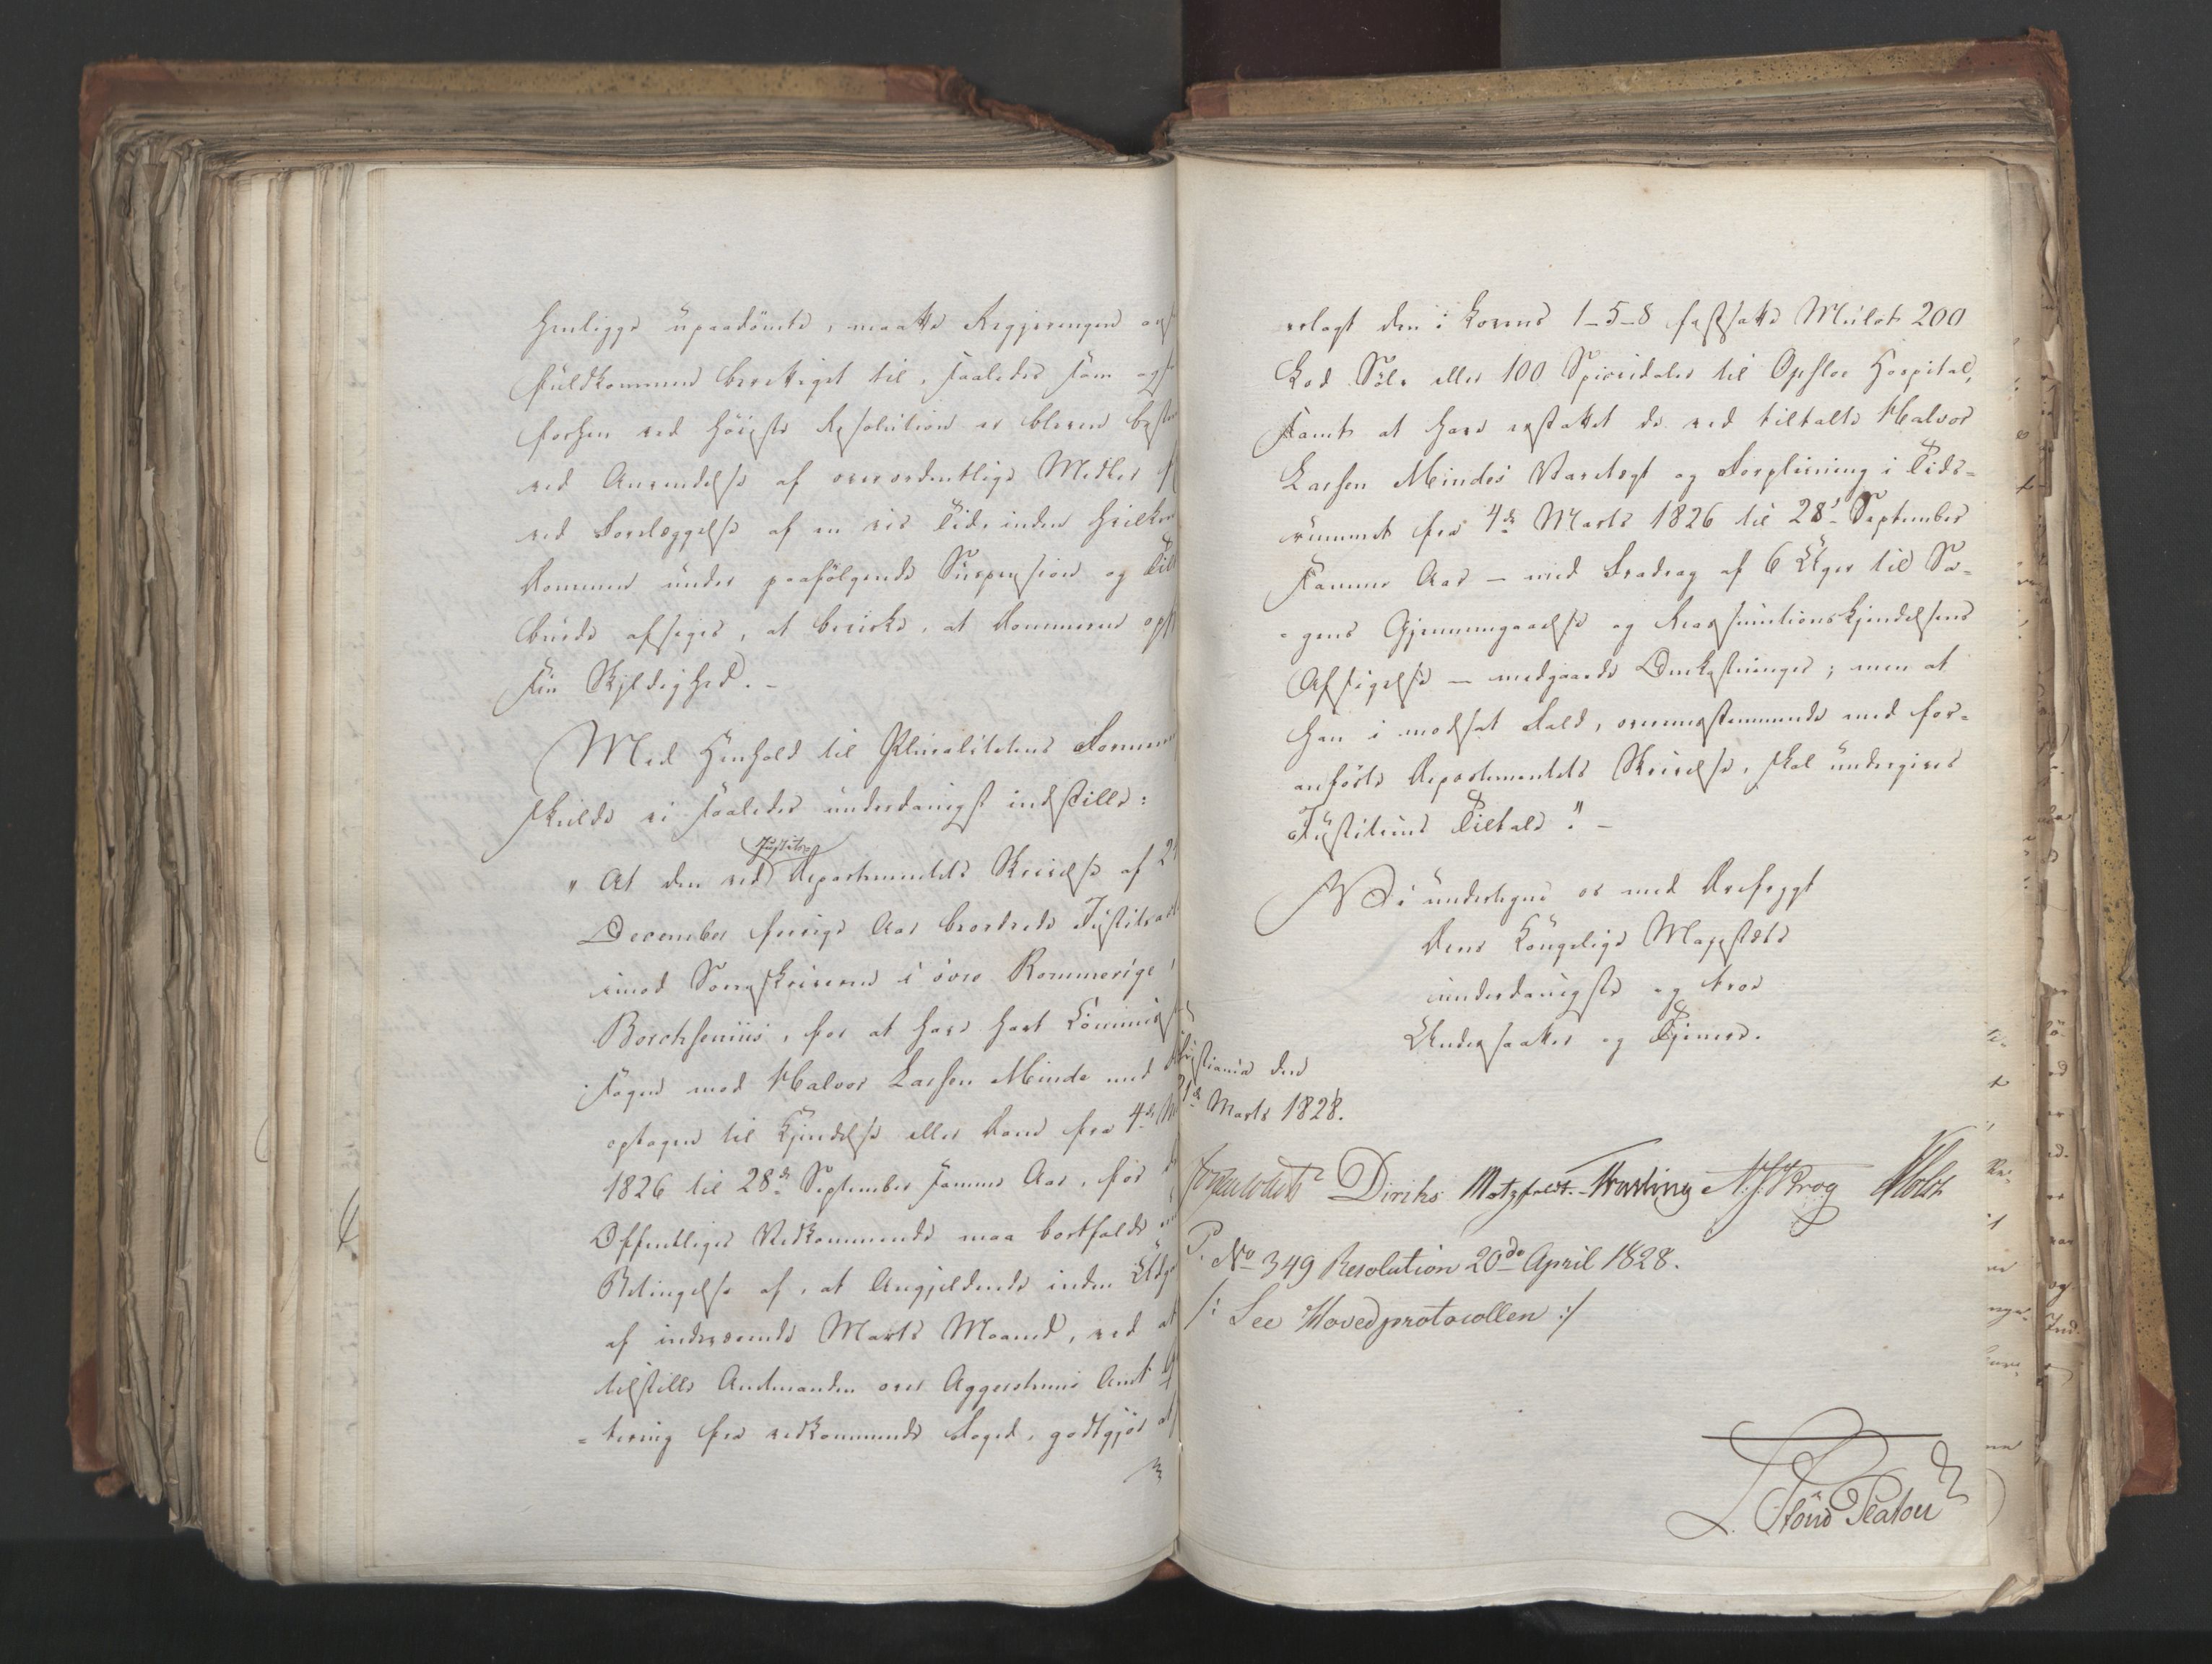 henligge upaadömte, maatte Regjeringen
fuldkommen berettiget til, saaledes som
forhen ved höieste Resolution er bleven
ved Anvendelse af overordentlige Midler
ved Forelæggelse af en vis Tid inden hvilken
Dommen under paafölgende Suspension og
burde afsiges, at bevirke, at Dommeren
sin Skyldighed. -
Med Henhold til Pluralitetens
skulde vi saaledes underdanigst indstille:
Justits-
„At den ved Departementets Skrivelse af
December forrige Aar beordrede
imod Sorenskriveren i övre Rommerige
Borchsenius, for at have havt
sagen mod Halvor Larsen Minde med
optagen til Kjendelse eller Dom fra 4de
1826 til 28de September samme Aar, for
Offentliges Vedkommende maa bortfalde
Betingelse af, at Angjeldende inden
af indeværende Marts Maaned, ved at
tilstille Amtmanden over Aggershuus Amt
-tering fra vedkommende Foged, godtgjör at
erlagt den i Lovens 1-5-8 fastsatte Mulct 200
Lod Sölv eller 100 Speciedaler til Opsloe Hospital,
samt at have erstattet de ved tiltalte Halvor
Larsen Mindes Varetægt og Forpleining i Tids-
rummet fra 4de Marts 1826 til 28de September
samme Aar — med Fradrag af 6 Uger til Sa-
-gens Gjennemgaaelse og Reassumtionskjendelsens
Afsigelse — medgaaede Omkostninger; men at
han i modsat Fald, overensstemmende med for-
anförte Departementets Skrivelse, skal undergives
Justitiens Tiltale". -
Vi undertegne os med Ærefrygt
Deres Kongelige Majestæts
underdanigste og troe
Undersaatter og Tjenere.
Christiania den
21de Marts 1828.
Diriks Motzfeldt. Krog Holst
P. No 349 Resolution 20de April 1828.
/: See Hovedprotocollen :/
Stoud Platou